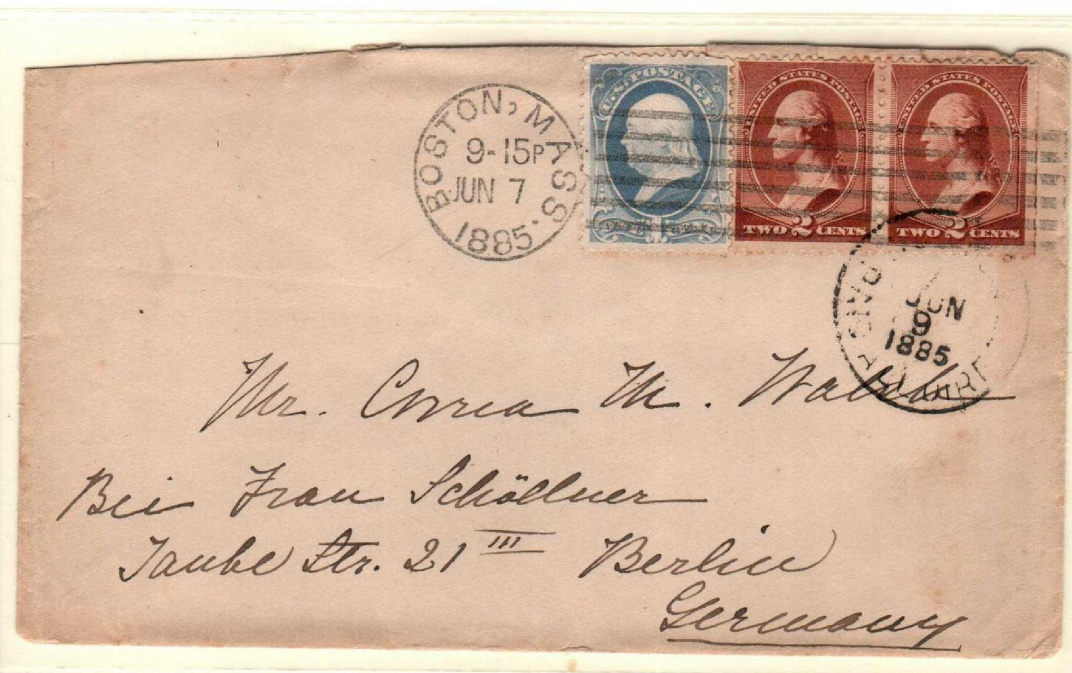 BOSTON, MASS.
9-15P
JUN 7
1885.
U.S. POSTAGE
UNITED STATES POSTAGE
TWO 2 CENTS
UNITED STATES POSTAGE
TWO 2 CENTS
JUN
9
1885
Mr. M.
Bei Frau Schöllner
Taube Str. 21 III Berlin
Germany